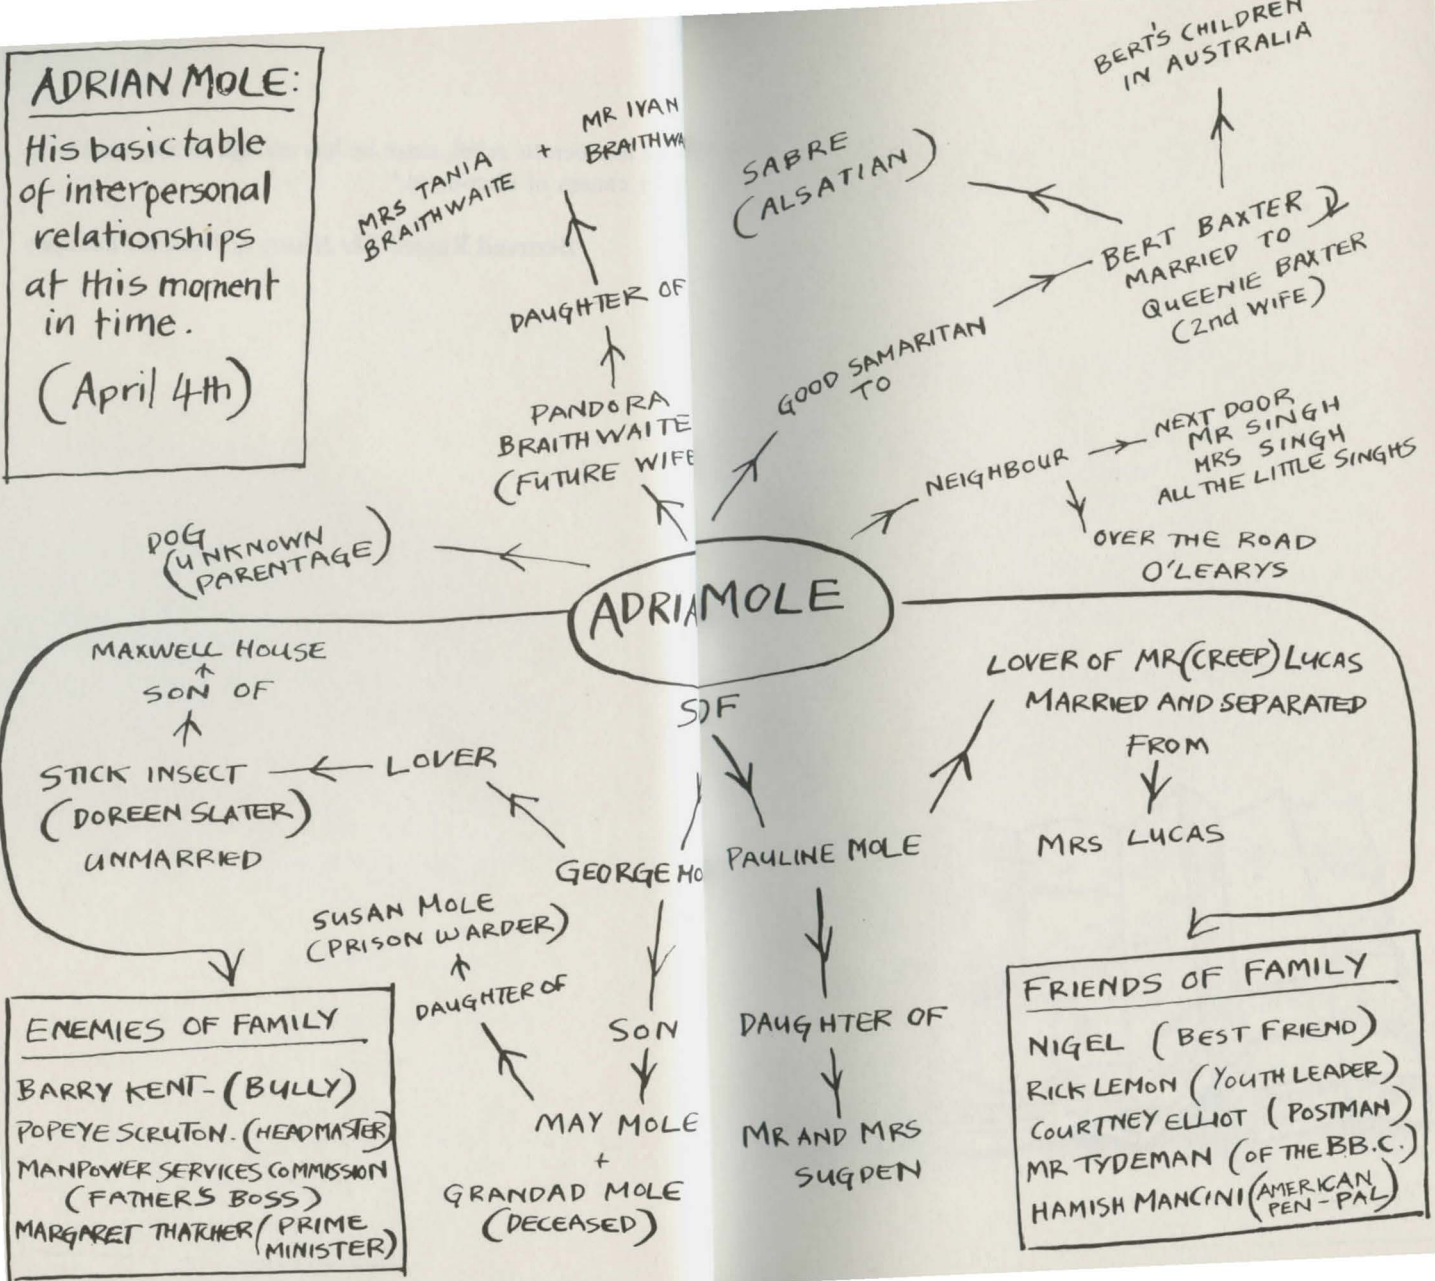 ADRIAN MOLE:
His basic table
of interpersonal
relationships
at this moment
in time.
(April 4th)
MRS TANIA
BRAITHWAITE
+
MR IVAN
BRAITHWA
DAUGHTER OF
PANDORA
BRAITHWAITE
(FUTURE WIFE
SABRE
(ALSATIAN)
BERT'S CHILDREN
IN AUSTRALIA
BERT BAXTER
MARRIED TO
QUEENIE BAXTER
(2nd WIFE)
GOOD SAMARITAN
TO
NEIGHBOUR
NEXT DOOR
MR SINGH
MRS SINGH
ALL THE LITTLE SINGHS
OVER THE ROAD
O'LEARYS
DOG
(UNKNOWN
PARENTAGE)
ADRIAMOLE
MAXWELL HOUSE
SON OF
STICK INSECT
(DOREEN SLATER)
UNMARRIED
LOVER
GEORGE MO
PAULINE MOLE
LOVER OF MR (CREEP) LUCAS
MARRIED AND SEPARATED
FROM
MRS LUCAS
SUSAN MOLE
(PRISON WARDER)
DAUGHTER OF
SON
MAY MOLE
+
GRANDAD MOLE
(DECEASED)
DAUGHTER OF
MR AND MRS
SUGDEN
ENEMIES OF FAMILY
BARRY KENT - (BULLY)
POPEYE SCRUTON. (HEADMASTER)
MANPOWER SERVICES COMMISSION
(FATHER'S BOSS)
MARGARET THATCHER (PRIME
MINISTER)
FRIENDS OF FAMILY
NIGEL (BEST FRIEND)
RICK LEMON (YOUTH LEADER)
COURTNEY ELLIOT (POSTMAN)
MR TYDEMAN (OF THE B.B.C.)
HAMISH MANCINI (AMERICAN
PEN-PAL)